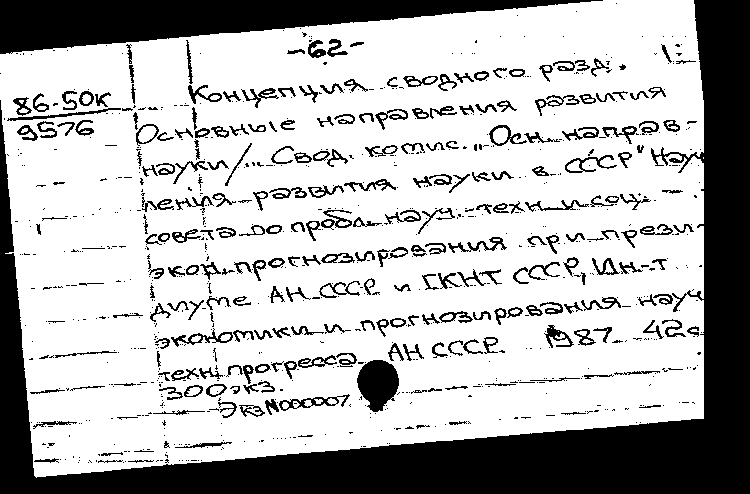 -62-
86-50К
9576
Концепция сводного разд.
Основные направления развития
науки/... Свод. комис. „Осн. направ-
ления развития науки в СССР" Науч
совета по пробл. науч.-техн. и соц.-
экон. прогнозирования при прези-
диуме АН СССР и ГКНТ СССР, Ин-т
экономики и прогнозирования науч
техн. прогресса АН СССР. 1987 42с
300экз.
Экз N000007